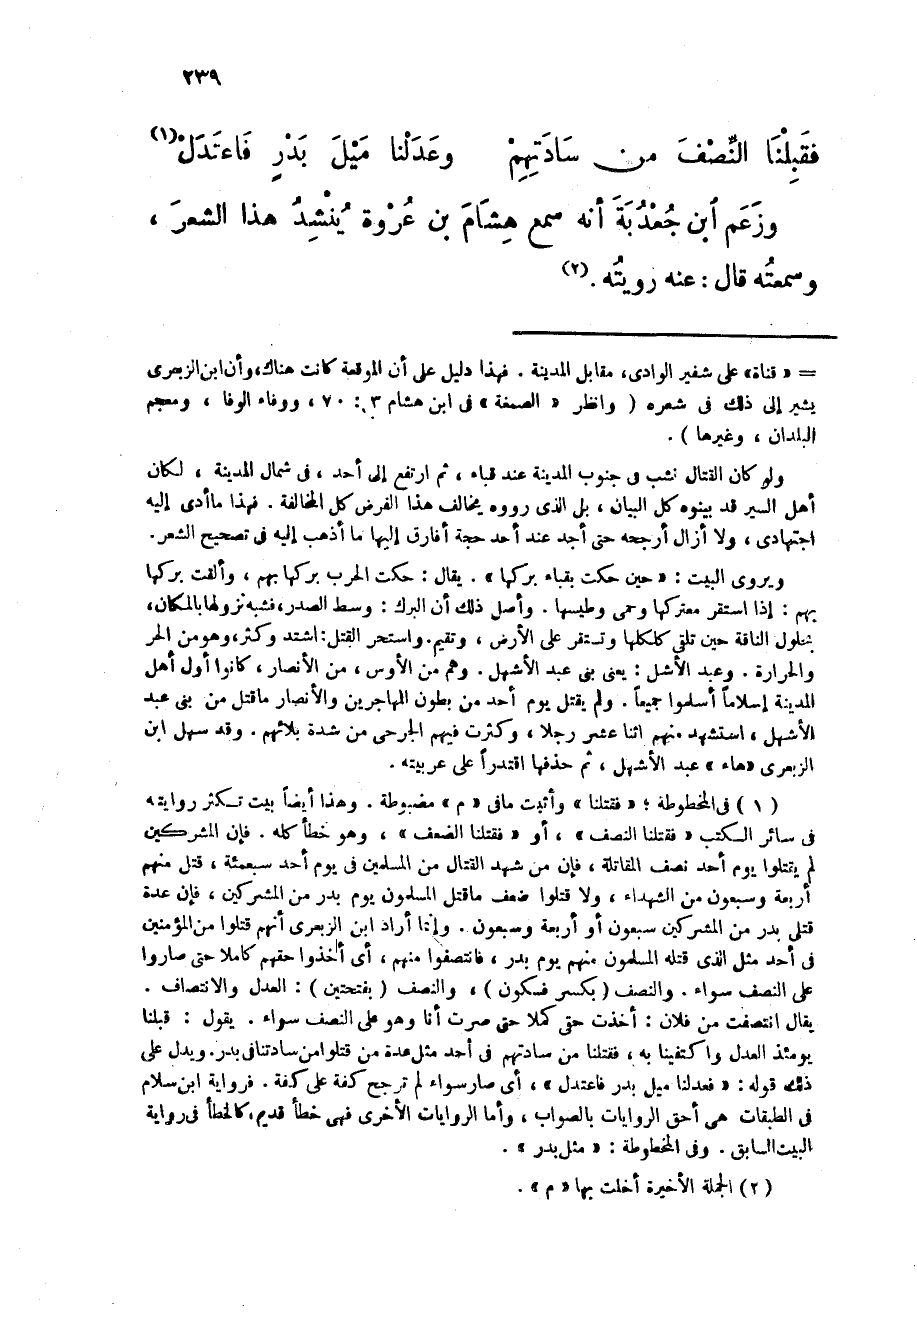 ٢٣٩
فَقَبِلْنَا النِّصْفَ من سَادَتِهِمْ وعَدَلْنا مَيْلَ بَدْرٍ فَاعتَدَلْ(١)
وزَعَم أبن جُعْدُبَةَ أنه سمع هِشَامَ بن عُرْوة يُنْشِدُ هذا الشعرَ ،
وسمعتُه قال : عنه رويتُه .(٢)
= « قناة » على شفير الوادى، مقابل المدينة . فهذا دليل على أن الموقعة كانت هناك، وأن ابن الزبعرى
يشير إلى ذلك فى شعره ( وانظر « الصمغة » فى ابن هشام ٣: ٧٠ ، ووفاء الوفا ، ومعجم
البلدان ، وغيرها ) .
ولو كان القتال نشب فى جنوب المدينة عند قباء ، ثم ارتفع إلى أحد ، فى شمال المدينة ، لكان
أهل السير قد بينوه كل البيان ، بل الذى رووه يخالف هذا الفرض كل المخالفة . فهذا ماأدى إليه
اجتهادى ، ولا أزال أرجحه حتى أجد عند أحد حجة أفارق إليها ما أذهب إليه فى تصحيح الشعر.
ويروى البيت : « حين حكت بقباء بركها » . يقال : حكت الحرب بركها بهم ، وألقت بركها
بهم : إذا استقر معتركها وحمى وطيسها . وأصل ذلك أن البرك : وسط الصدر، فشبه نزولها بالمكان،
بحلول الناقة حين تلقى كلكلها وتستقر على الأرض ، وتقيم. واستحر القتل: اشتد وكثر، وهو من الحر
والحرارة . وعبد الأشل : يعنى بنى عبد الأشهل . وهم من الأوس ، من الأنصار ، كانوا أول أهل
المدينة إسلاماً أسلموا جميعاً . ولم يقتل يوم أحد من بطون المهاجرين والأنصار ماقتل من بنى عبد
الأشهل ، استشهد منهم اثنا عشر رجلا ، وكثرت فيهم الجرحى من شدة بلائهم . وقد سهل ابن
الزبعرى «هاء» عبد الأشهل ، ثم حذفها اقتدراً على عربيته .
( ١ ) فى المخطوطة : « فقتلنا » وأثبت مافى « م » مضبوطة . وهذا أيضاً بيت تكثر روايته
فى سائر الكتب « فقتلنا النصف » ، أو « فقتلنا الضعف » ، وهو خطأ كله . فإن المشركين
لم يقتلوا يوم أحد نصف المقاتلة ، فإن من شهد القتال من المسلمين فى يوم أحد سبعمئة ، قتل منهم
أربعة وسبعون من الشهداء ، ولا قتلوا ضعف ماقتل المسلمون يوم بدر من المشركين ، فإن عدة
قتلى بدر من المشركين سبعون أو أربعة وسبعون . وإنما أراد ابن الزبعرى أنهم قتلوا من المؤمنين
فى أحد مثل الذى قتله المسلمون منهم يوم بدر ، فانتصفوا منهم ، أى أخذوا حقهم كاملا حتى صاروا
على النصف سواء . والنصف ( بكسر فسكون ) ، والنصف ( بفتحتين ) : العدل والانتصاف .
يقال انتصفت من فلان : أخذت حتى كملا حتى صرت أنا وهو على النصف سواء . يقول : قبلنا
يومئذ العدل واكتفينا به ، فقتلنا من سادتهم فى أحد مثل عدة من قتلوا من سادتنا فى بدر. ويدل على
ذلك قوله : « فعدلنا ميل بدر فاعتدل » ، أى صار سواء لم ترجح كفة على كفة . فرواية ابن سلام
فى الطبقات هى أحق الروايات بالصواب ، وأما الروايات الأخرى فهى خطأ قديم، كالخطأ فى رواية
البيت السابق . وفى المخطوطة : « مثل بدر » .
( ٢ ) الجملة الأخيرة أخلت بها « م » .